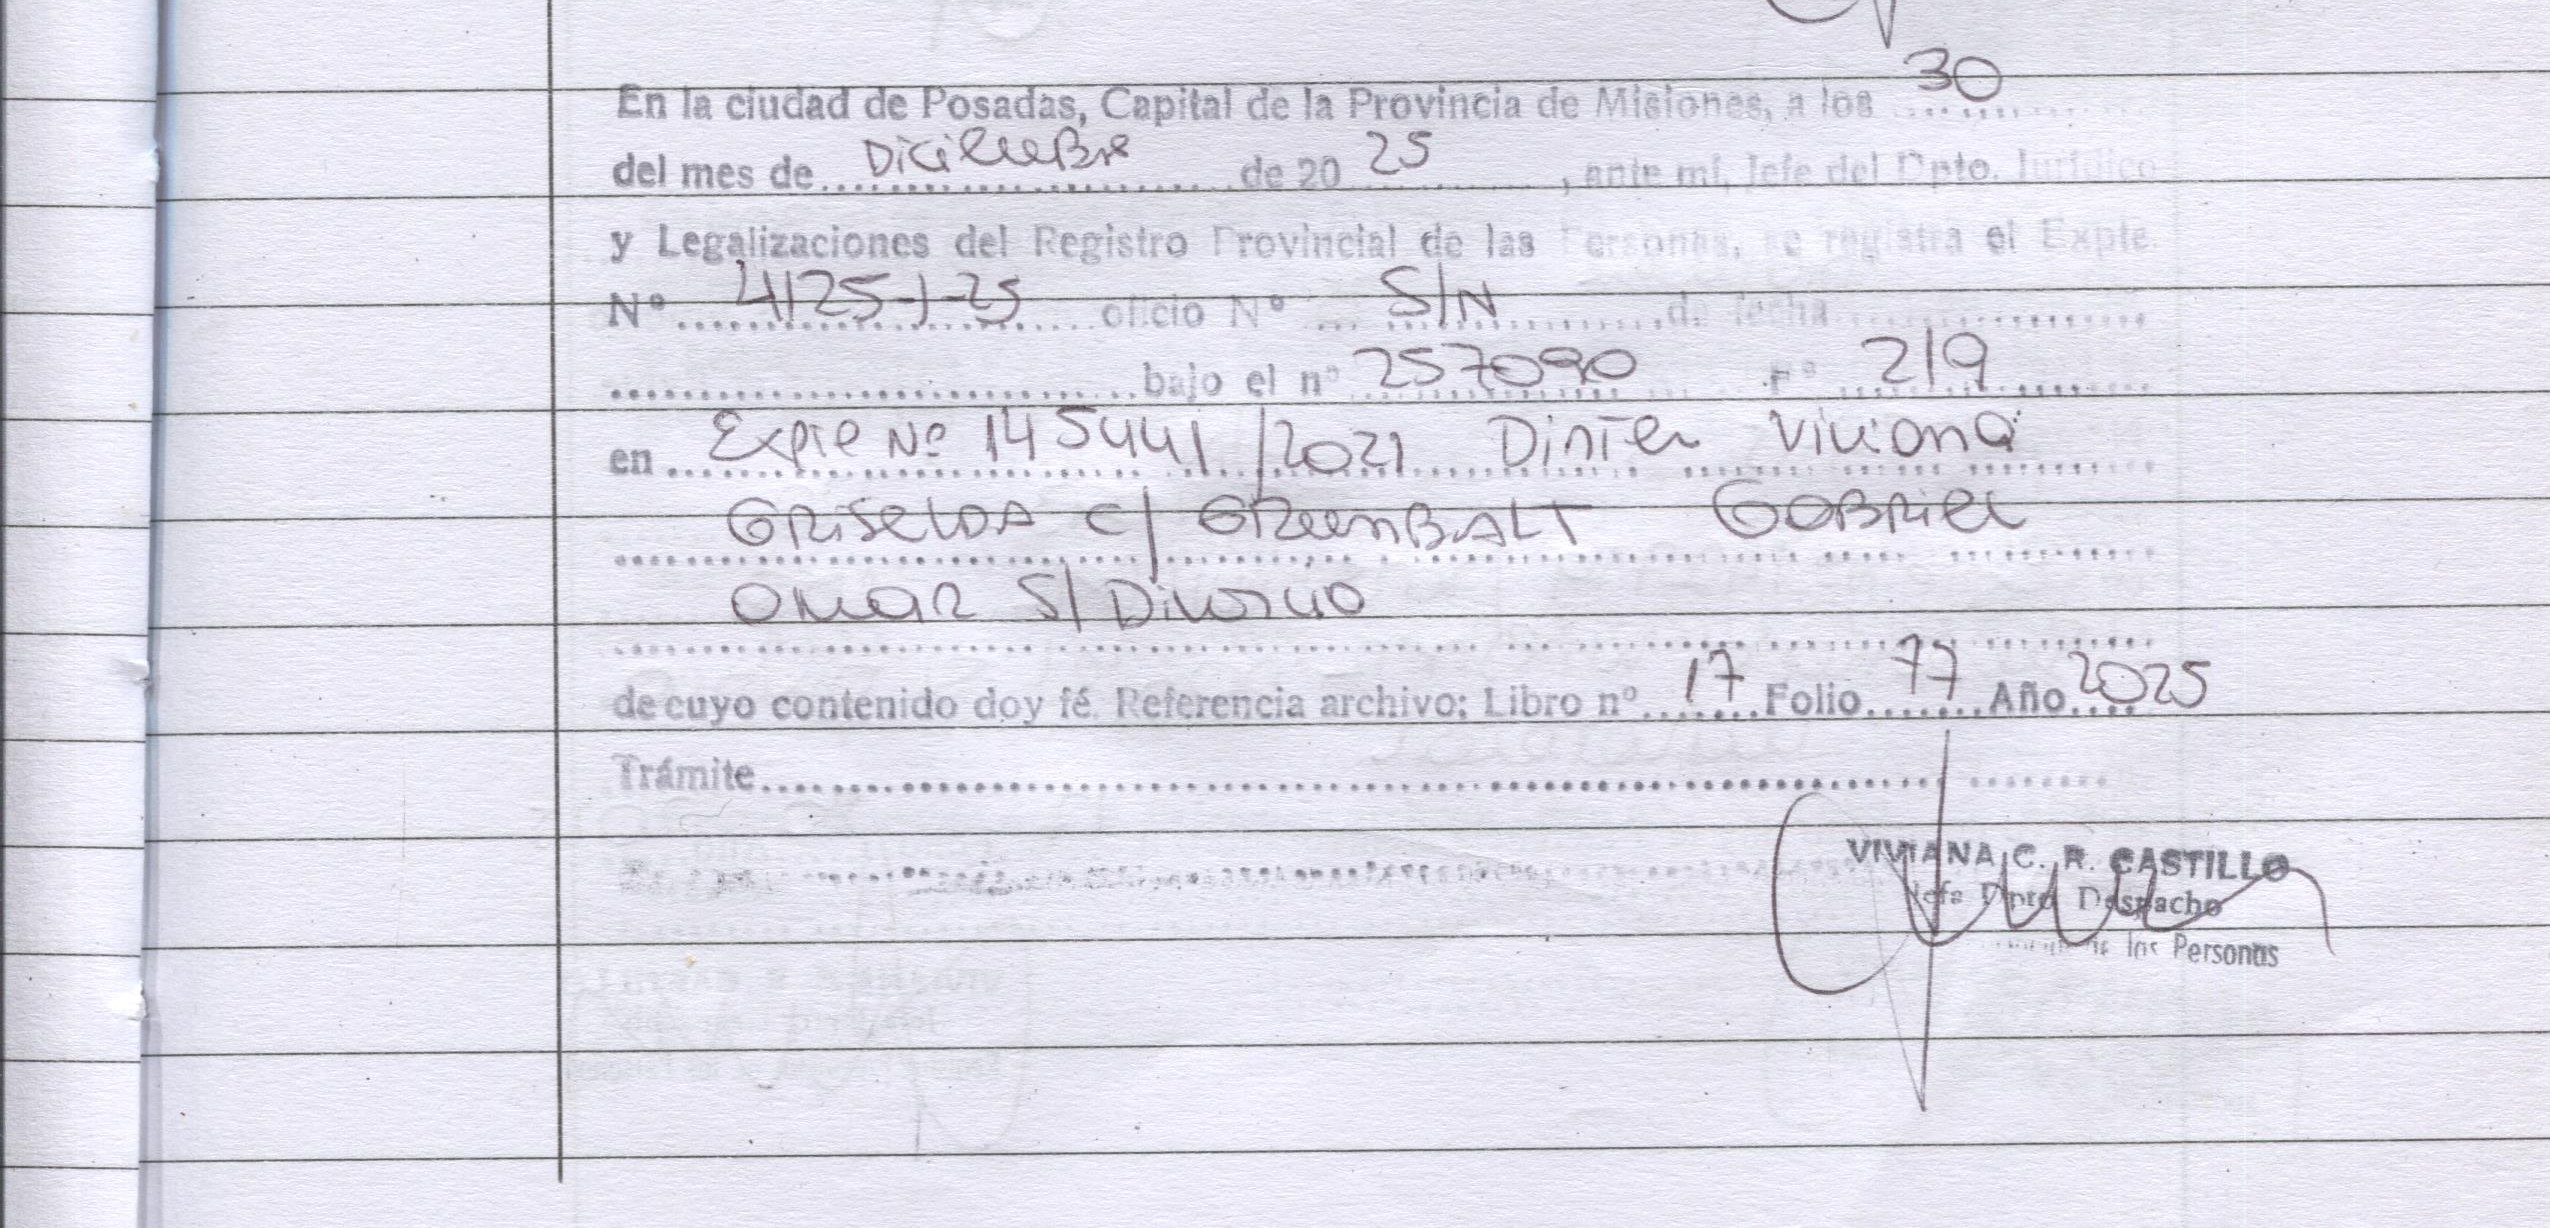 En la ciudad de Posadas, Capital de la Provincia de Misiones, a los 30
del mes de Diciembre de 20 25, ante mí, Jefe del Dpto. Jurídico
y Legalizaciones del Registro Provincial de las Personas, se registra el Expte.
Nº 4125-J-25 oficio Nº S/N de fecha
bajo el nº 257090 Fº 219
en Expte Nº 145441/2021 Dinter Viviana
Griselda c/ GreenBALT Gabriel
Omar S/ Divorcio
de cuyo contenido doy fé. Referencia archivo: Libro nº 17 Folio 77 Año 2025
Trámite
VIVIANA C. R. CASTILLO
Jefa Dpto Despacho
de las Personas